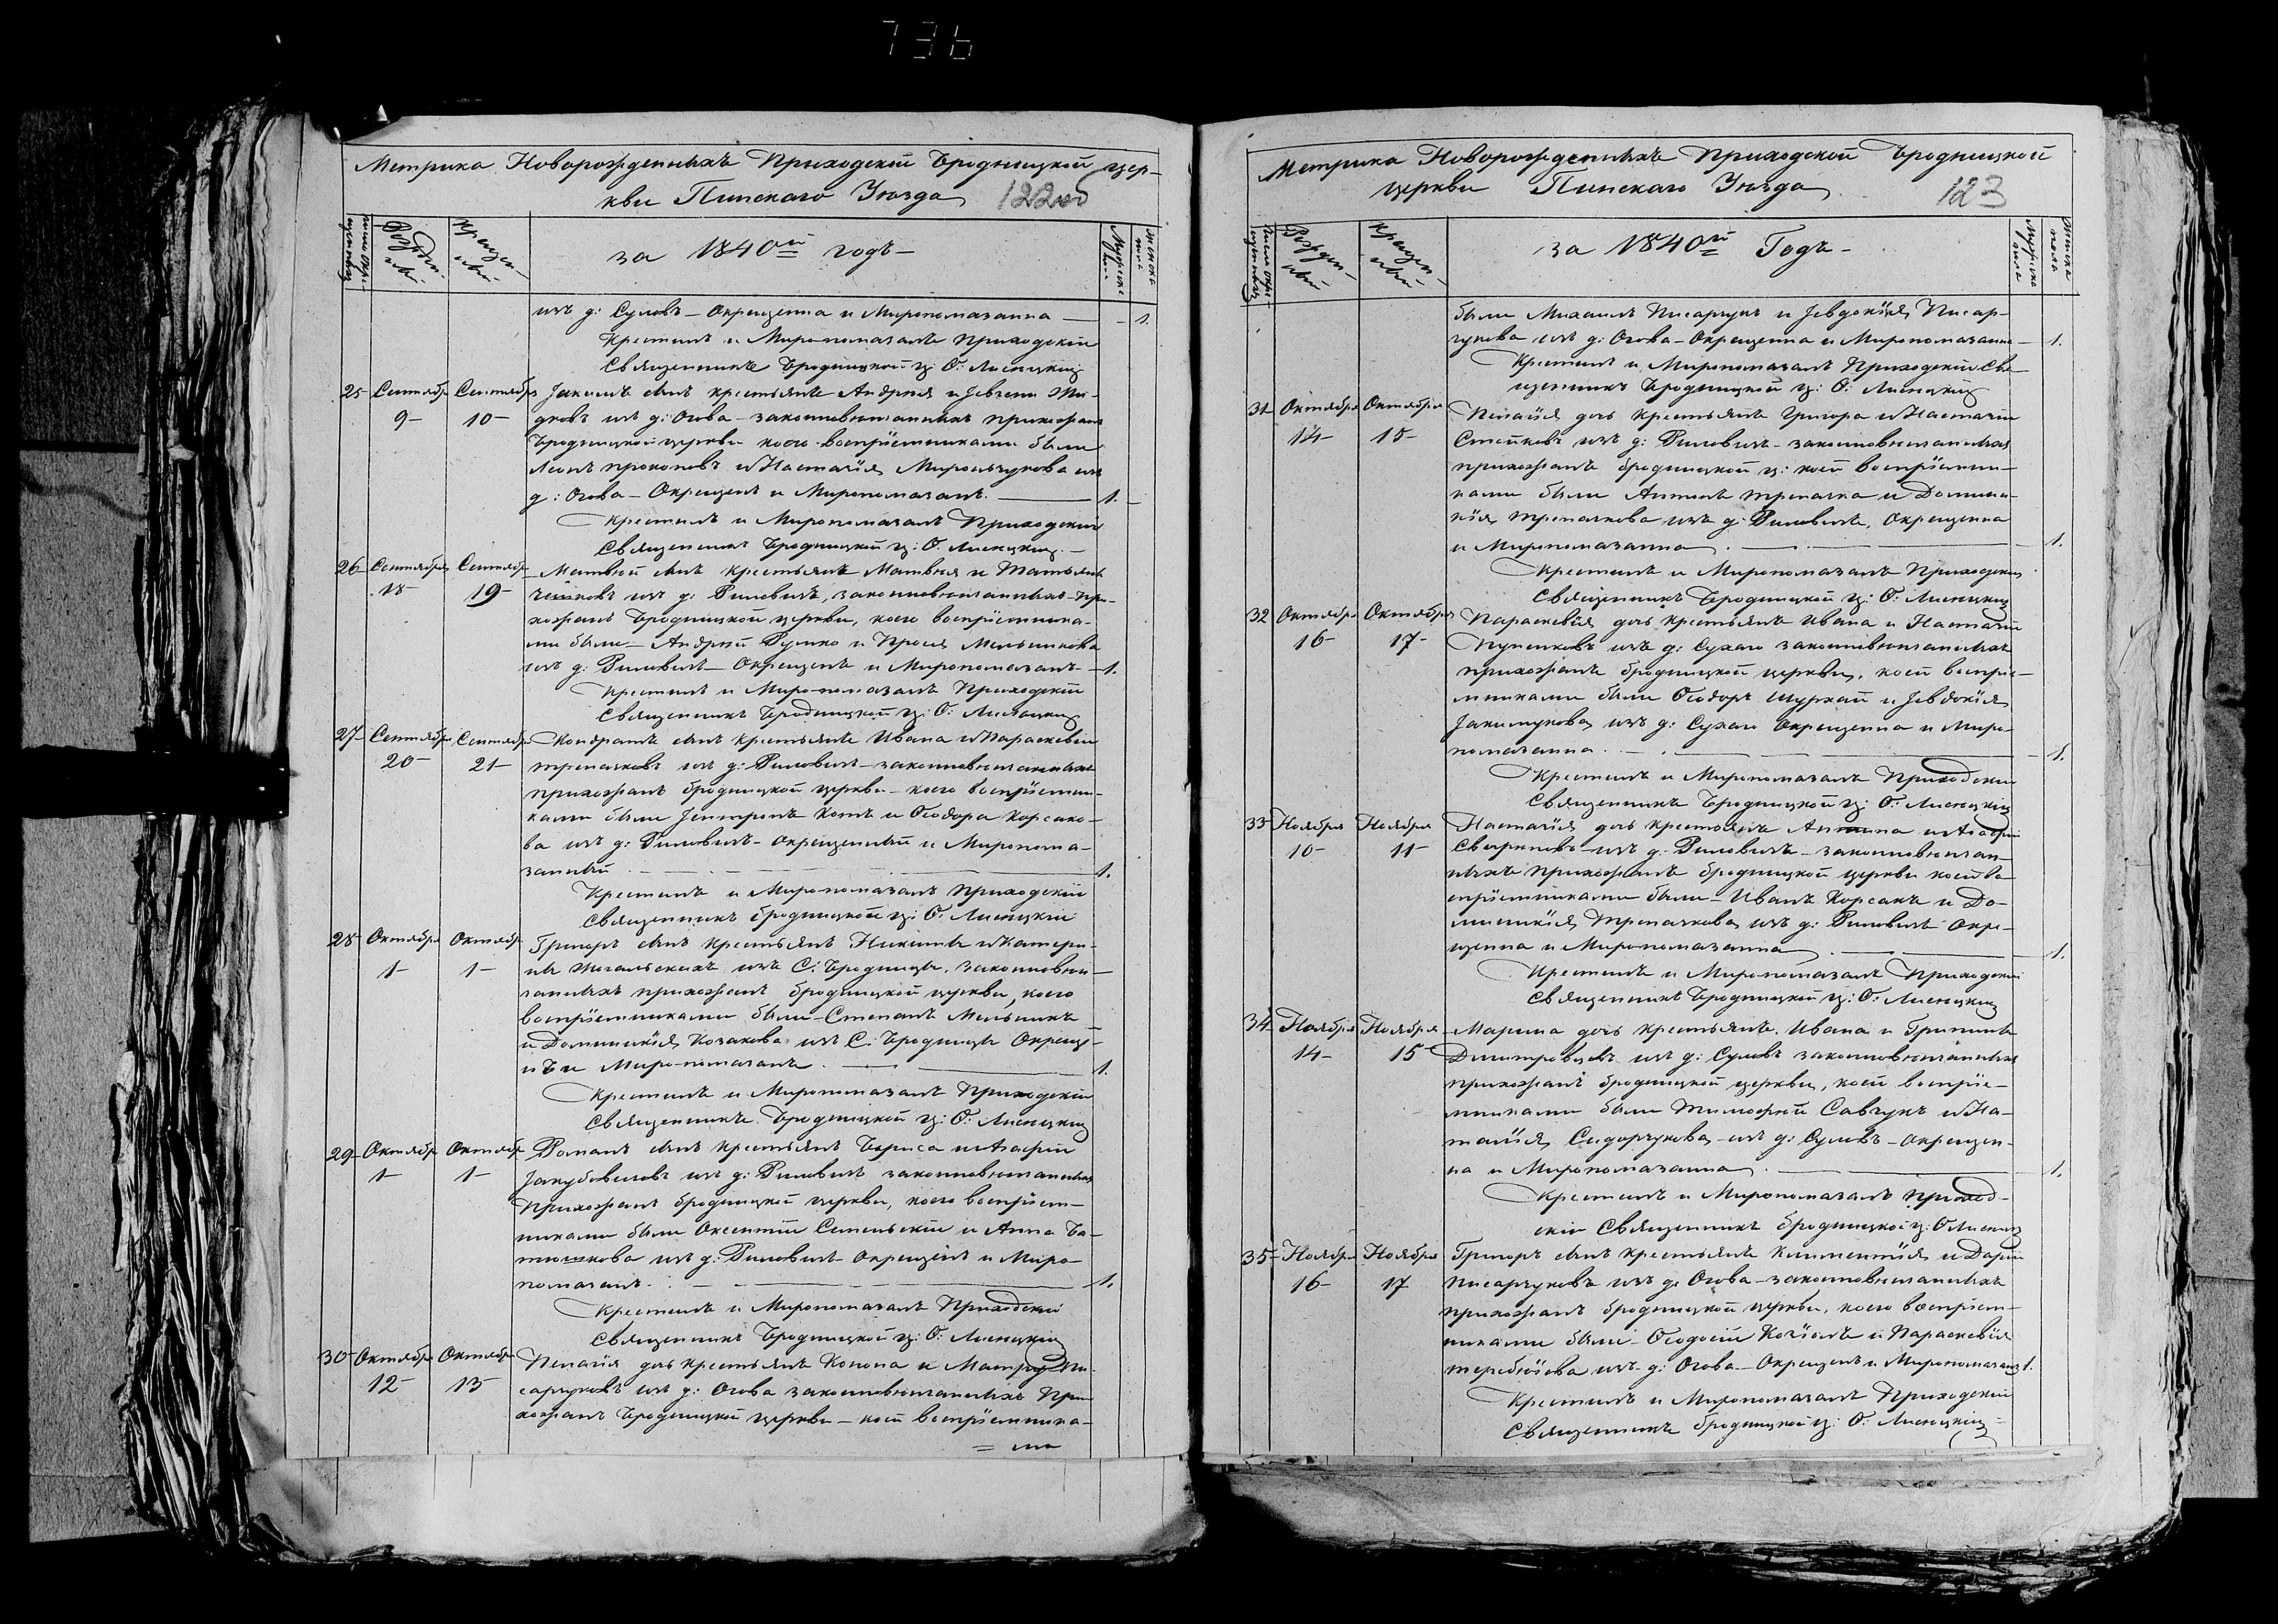 736
Метрика Новорожденныхъ Приходской Бродницкой цер-
кви Пинскаго Уѣзда 122об
за 1840й годъ-
изъ д: Суловъ - Окрещенна и Миропомазанна - 1.
Крестилъ и Миропомазалъ Приходскій
Священникъ Бродницкой ц: О. Лисецкій
25 Сентября Сентября Іакимъ сынъ крестьянъ Андрея и Іевгени
9- 10- изъ д: Огова - законновѣнчанныхъ прихожанъ
Бродницкой церкви коего воспріемниками были
Леонъ прокоповъ и Настасія изъ
д: Огова - Окрещенъ и Миропомазанъ. 1.
Крестилъ и Миропомазалъ Приходскій
Священникъ Бродницкой ц: О. Лисецкій
26 Сентября Сентября Матвѣй сынъ крестьянъ Матвѣя и Татьяны
18- 19- изъ д: Риловичъ, законновѣнчанныхъ-при-
хожанъ Бродницкой церкви, коего воспріемника-
ми были - Андрей Румко и Прося Мельникова
изъ д: Риловичъ - Окрещенъ и Миропомазанъ - 1.
Крестилъ и Миропомазалъ Приходскій
Священникъ Бродницкой ц: О. Лисецкій
27 Сентября Сентября Кондратъ сынъ крестьянъ Ивана и Параскевіи
20- 21- трепачковъ изъ д: Риловичъ - законновѣнчанныхъ
прихожанъ бродницкой церкви - коего воспріемни-
ками были котъ и Ѳеодора корсако-
ва изъ д: Риловичъ - окрещенный и Миропома-
занный 1.
Крестилъ и Миропомазалъ приходскій
Священникъ бродницкой ц: О. Лисецкій
28 Октября Октября Григоръ сынъ крестьянъ Никиты и Катери-
1- 1- ны изъ С. Бродницы, законновѣн-
чанныхъ прихожанъ бродницкой церкви, коего
воспріемниками были - Степанъ Мельникъ
и Доминикія Козакова изъ С. Бродницы Окрещ-
нъ и Миропомазанъ 1.
Крестилъ и Миропомазалъ Приходскій
Священникъ Бродницкой ц: О. Лисецкій
29 Октября Октября Романъ сынъ крестьянъ Бориса и Агафіи
1- 1- Якубовичовъ изъ д: Риловичъ законновѣнчанныхъ
Прихожанъ бродницкой церкви, коего воспріем-
никами были Оксентій и Анна Ба-
тюшкова изъ д: Риловичъ окрещенъ и Миро-
помазанъ. 1.
Крестилъ и Миропомазалъ Приходскій
Священникъ Бродницкой ц: О. Лисецкій
30 Октября Октября Пелагія дочь крестьянъ Конона и Матроны Пи-
12- 13 сарчуковъ изъ д: Огова законновѣнчанныхъ При
хожанъ Бродницкой церкви - коей воспріемника-
= ми
Метрика Новорожденныхъ Приходской Бродницкой
церкви Пинскаго Уѣзда 123
за 1840й Годъ-
были Михаилъ Писарчукъ и Іевдокія Писар-
чукова изъ д: Огова - Окрещенна и Миропомазанна - 1.
Крестилъ и Миропомазалъ Приходскій Свя-
щенникъ Бродницкой ц: О. Лисецкій
31 Октября Октября Пелагія дочь крестьянъ Григора и Настасіи
14- 15- изъ д: Риловичъ - законновѣнчанныхъ
прихожанъ бродницкой ц: коей воспріемни-
ками были Антонъ трепачка и Домини-
кія трепачкова изъ д: Риловичъ, окрещенна
и Миропомазанна 1.
Крестилъ и Миропомазалъ Приходскій
Священникъ Бродницкой ц: О. Лисецкій
32 Октября Октября Параскевія дочь крестьянъ Ивана и Настасіи
16- 17- изъ д: Сухаго законновѣнчанныхъ
прихожанъ бродницкой церкви, коей воспріе-
мниками были Ѳеодоръ Шуркай и Іевдокія
Якимчукова изъ д: Сухаго Окрещенна и Миро-
помазанна. 1.
Крестилъ и Миропомазалъ Приходскій
Священникъ Бродницкой ц: О. Лисецкій
33 Ноября Ноября Настасія дочь крестьянъ и Агафіи
10- 11- изъ д: Риловичъ - законновѣнчан-
ныхъ прихожанъ бродницкой церкви коей во-
спріемниками были - Иванъ Корсакъ и До-
миникія Трепачкова изъ д: Риловичъ Окре-
щенна и Миропомазанна 1.
Крестилъ и Миропомазалъ Приходскій
Священникъ Бродницкой ц: О. Лисецкій
34 Ноября Ноября Марина дочь крестьянъ Ивана и
14- 15 изъ д: Суловъ законновѣнчанныхъ
прихожанъ бродницкой церкви, коей воспріе-
мниками были Тимофей Савчукъ и На-
тасія Сидорчукова изъ д: Суловъ - окрещен-
на и Миропомазанна. 1.
Крестилъ и Миропомазалъ приход-
скій Священникъ бродницкой ц: О Лисецкій
35 Ноября Ноября Григоръ сынъ крестьянъ Климентія и Даріи
16- 17 Писарчуковъ изъ д: Огова - законновѣнчанныхъ
прихожанъ бродницкой церкви, коего воспріем-
никами были - Ѳеодосій и Параскевія
изъ д: Огова - Окрещенъ и Миропомазанъ 1.
Крестилъ и Миропомазалъ Приходскій
Священникъ бродницкой ц: О. Лисецкій